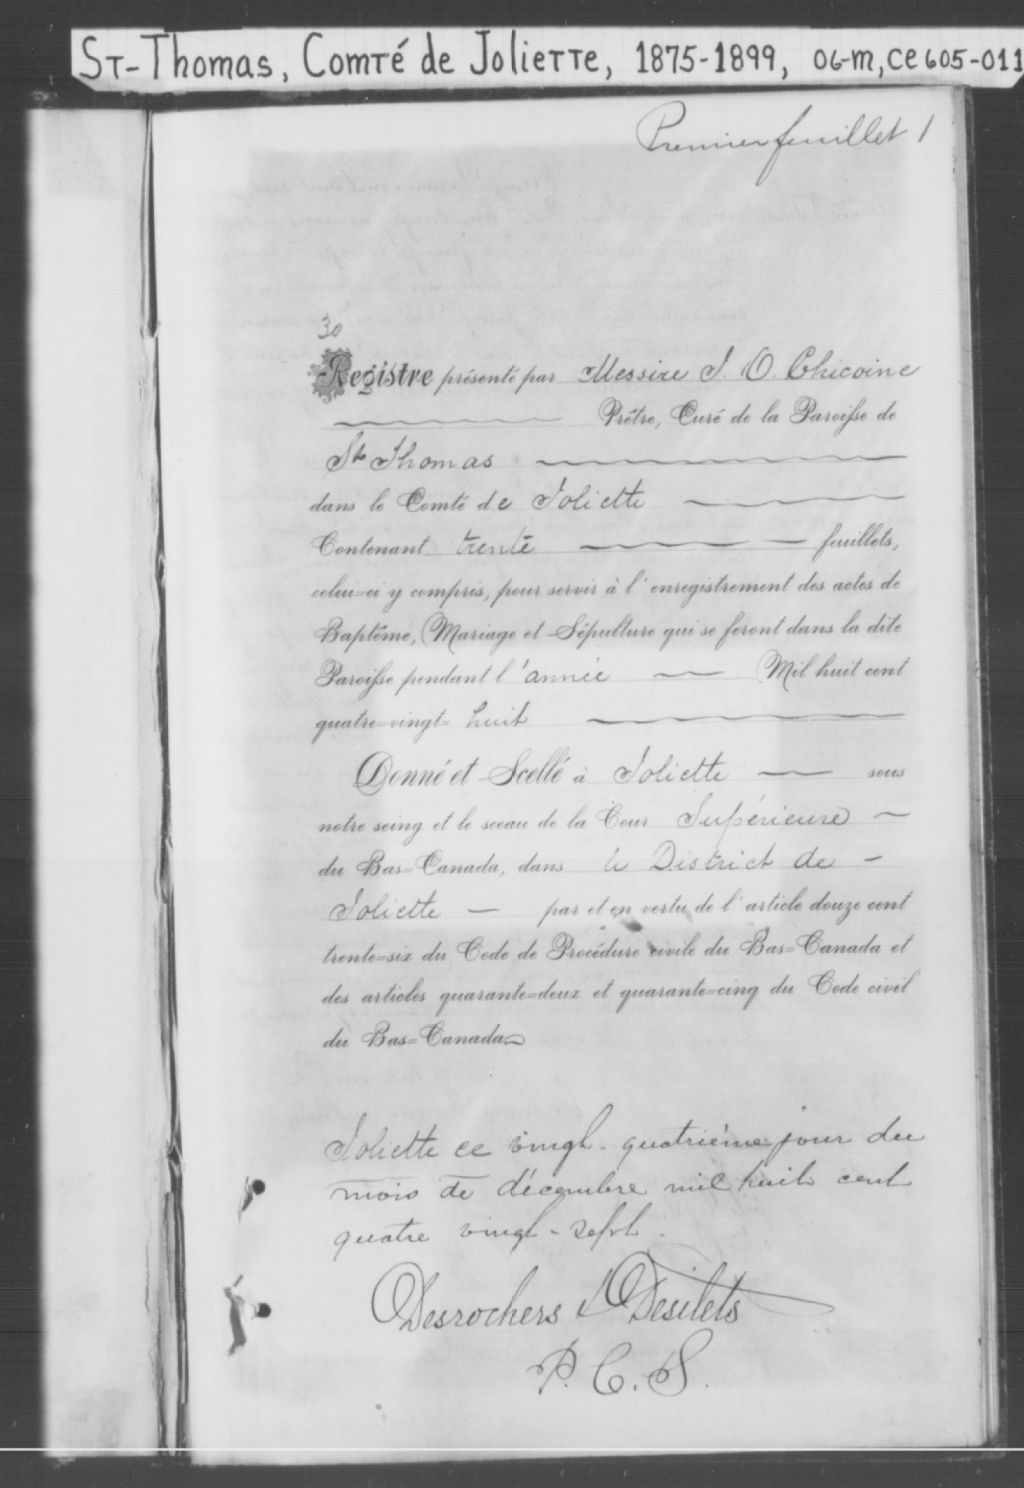 St-Thomas, Comté de Joliette, 1875-1899, 06-M, CE605-011
Premier feuillet 1
30
Registre présenté par Messire J. O. Chicoine
Prêtre, Curé de la Paroisse de
St Thomas
dans le Comté de Joliette
Contenant trente feuillets,
celui-ci y compris, pour servir à l'enregistrement des actes de
Baptême, Mariage et Sépulture qui se feront dans la dite
Paroisse pendant l'année Mil huit cent
quatre-vingt-huit
Donné et Scellé à Joliette sous
notre seing et le sceau de la Cour Supérieure
du Bas-Canada, dans le District de
Joliette par et en vertu de l'article douze cent
trente-six du Code de Procédure civile du Bas-Canada et
des articles quarante-deux et quarante-cinq du Code civil
du Bas-Canada
Joliette ce vingt-quatrième jour du
mois de décembre mil huit cent
quatre vingt-sept.
Desrochers & Desilets
P. C. S.